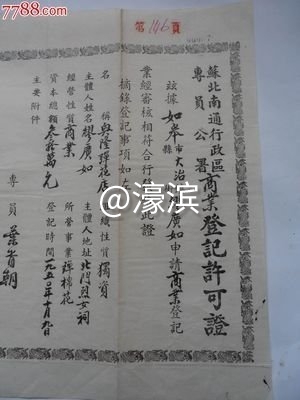 7788.com
第146頁
蘇北南通行政區
專員公署
商業登記許可證
茲據如皋市縣大治 廣如申請商業登記
業經審核相符合行 此證
摘錄登記事項如左
名稱 興隆彈花店 組織性質 獨資
主體人姓名 廣如 主體人地址 北門烈女祠
經營性質 商業 所營事業 彈棉花
資本總額 叁拾萬元 登記時間 一九五〇年十月九日
主要附件
專員 葉胥朝
@濠滨